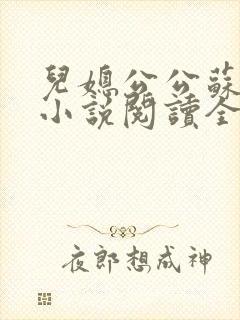 兒媳公公蘇
小說閱讀全
夜郎想成神